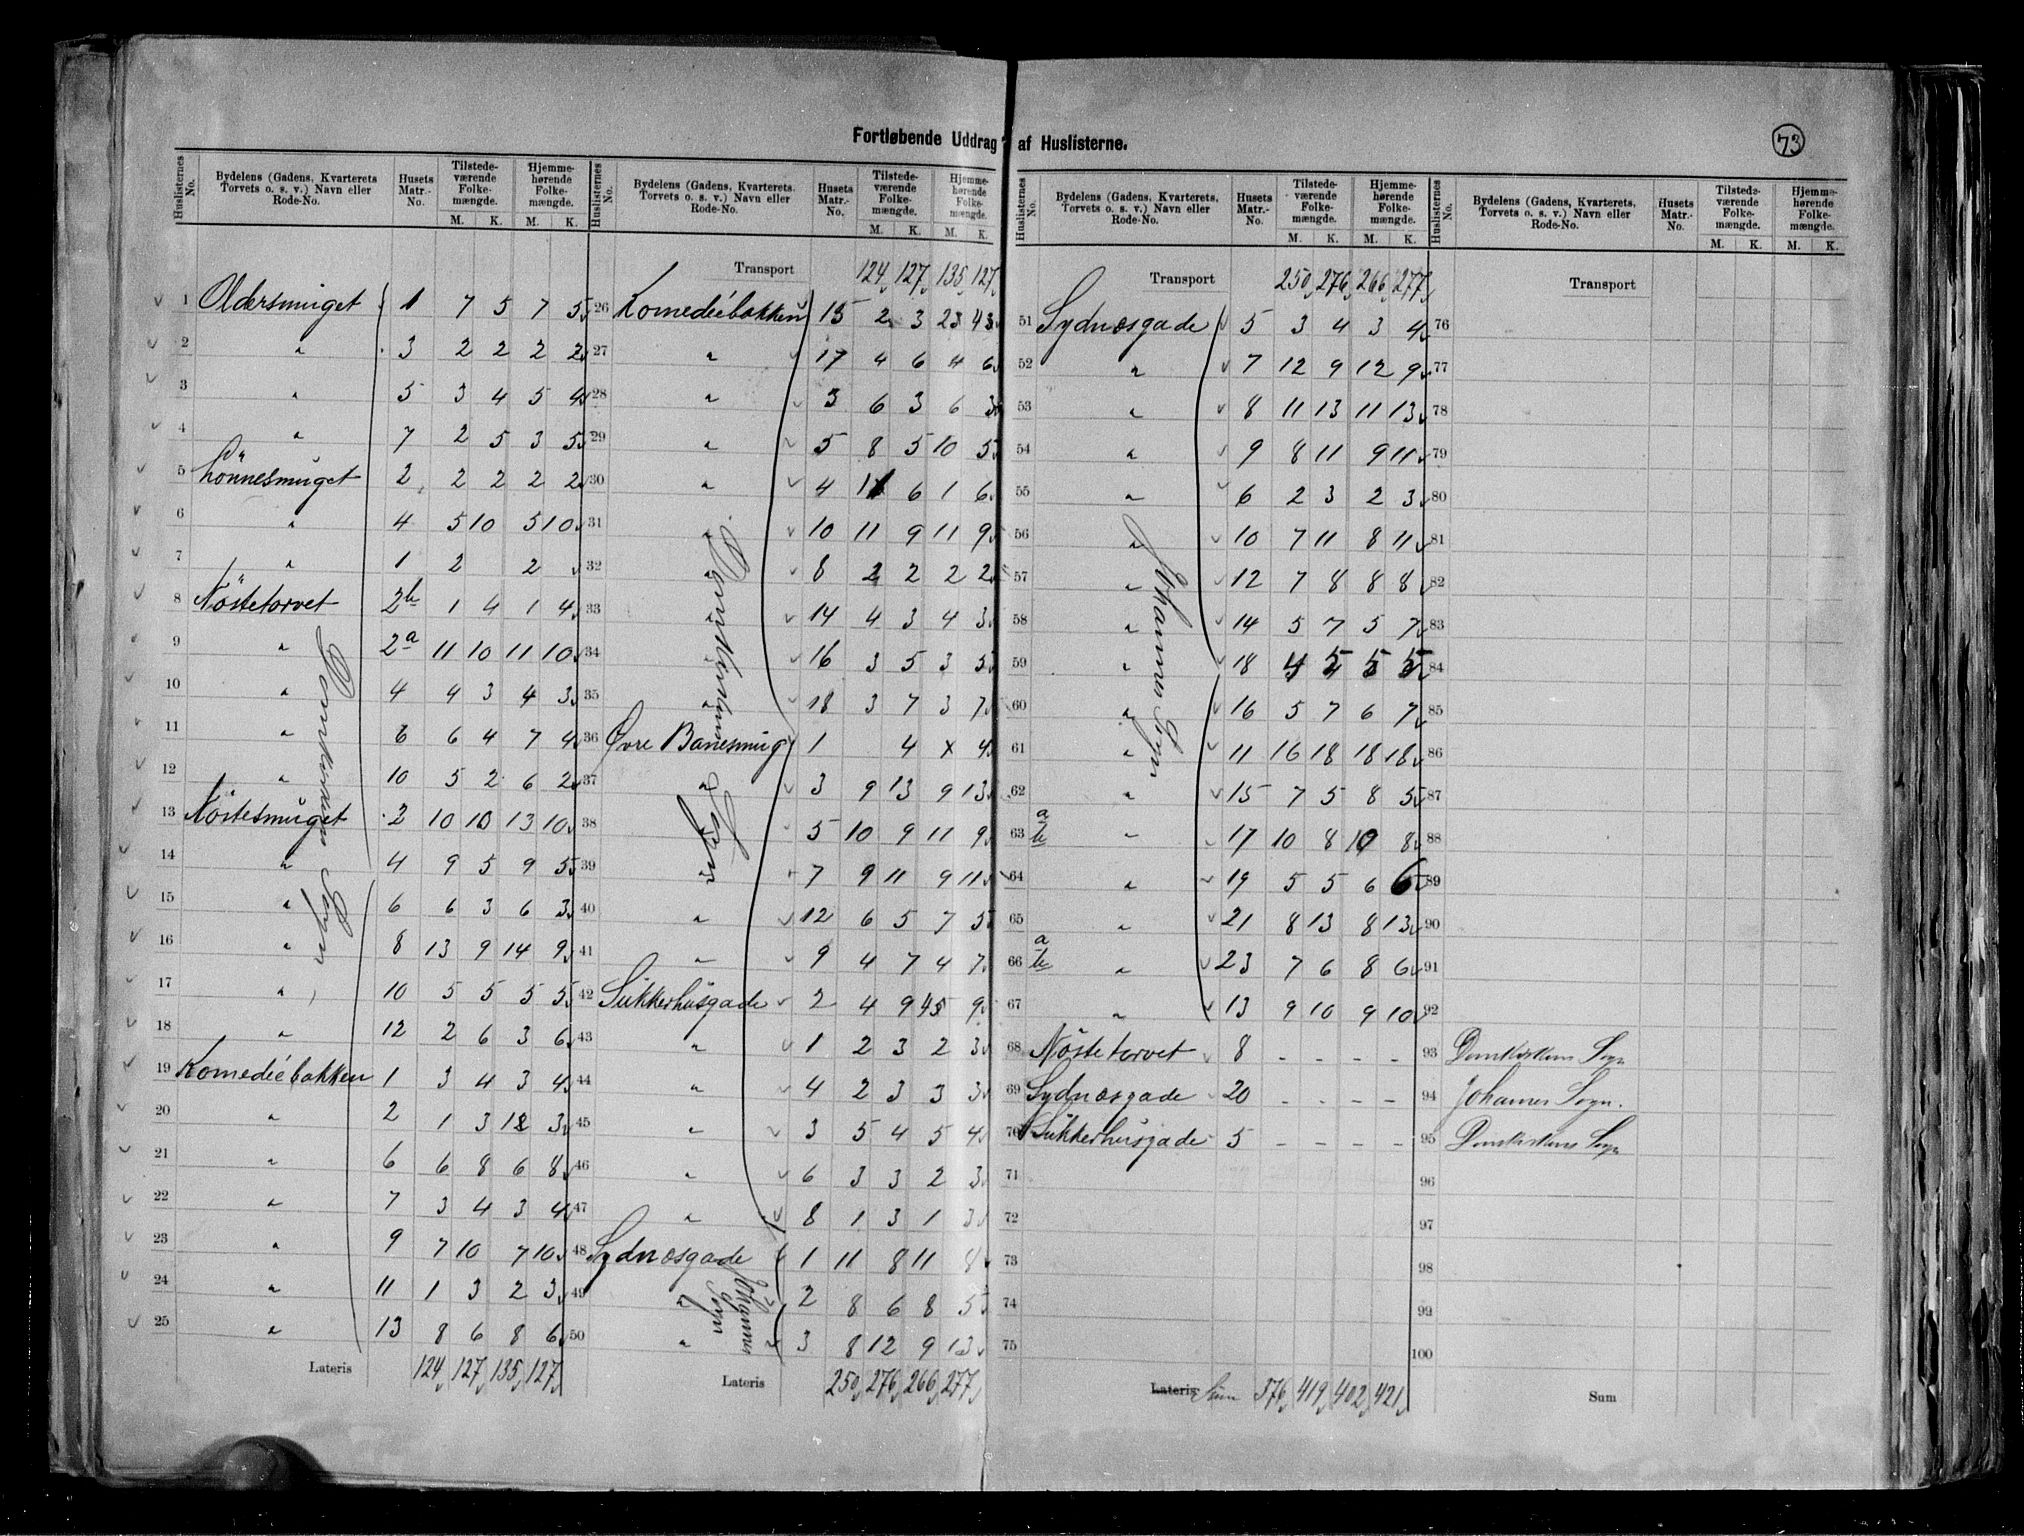 Fortløbende Uddrag af Huslisterne.
73
Huslisternes No. | Bydelens (Gadens, Kvarterets, Torvets o. s. v.) Navn eller Rode-No. | Husets Matr.-No. | Tilstedeværende Folkemængde. M. K. | Hjemmehørende Folkemængde. M. K.
1 Oldersmuget 1 7 5 7 5
2 " 3 2 2 2 2
3 " 5 3 4 5 4
4 " 7 2 5 3 5
5 Lönnesmuget 2 2 2 2 2
6 " 4 5 10 5 10
7 " 1 2 2
8 Nöstetorvet 2b 1 4 1 4
9 " 2a 11 10 11 10
10 " 4 4 3 4 3
11 " 6 6 4 7 4
12 " 10 5 2 6 2
13 Nöstesmuget 2 10 10 13 10
14 " 4 9 5 9 5
15 " 6 6 3 6 3
16 " 8 13 9 14 9
17 " 10 5 5 5 5
18 " 12 2 6 3 6
19 Komediebakken 1 3 4 3 4
20 " 2 1 3 3
21 " 6 6 8 6 8
22 " 7 3 4 3 4
23 " 9 7 10 7 10
24 " 11 1 3 2 3
25 " 13 8 6 8 6
Domkirkens Sogn
Lateris 124 127 135 127
Huslisternes No. | Bydelens (Gadens, Kvarterets, Torvets o. s. v.) Navn eller Rode-No. | Husets Matr.-No. | Tilstedeværende Folkemængde. M. K. | Hjemmehørende Folkemængde. M. K.
Transport 124 127 135 127
26 Komediebakken 15 2 3
27 " 17 4 6 4 6
28 " 3 6 3 6 3
29 " 5 8 5 10 5
30 " 4 6 1 6
31 " 10 11 9 11 9
32 " 8 2 2 2 2
33 " 14 4 3 4 3
34 " 16 3 5 3 5
35 " 18 3 7 3 7
36 Øvre Banesmug 1 4 x 4
37 " 3 9 13 9 13
38 5 10 9 11 9
39 7 9 11 9 11
40 " 12 6 5 7 5
41 " 9 4 7 4 7
42 Sukkerhusgade 2 4 9 9
43 " 1 2 3 2 3
44 " 4 2 3 3 3
45 " 3 5 4 5 4
46 " 6 3 3 2 3
47 " 8 1 3 1 3
48 Sydnæsgade 1 11 8 11 8
49 " 2 8 6 8 5
50 " 3 8 12 9 13
Domkirkens Sogn
Johannes Sogn
Lateris 250 276 266 277
Huslisternes No. | Bydelens (Gadens, Kvarterets, Torvets o. s. v.) Navn eller Rode-No. | Husets Matr.-No. | Tilstedeværende Folkemængde. M. K. | Hjemmehørende Folkemængde. M. K.
Transport 250 276 266 277
51 Sydnæsgade 5 3 4 3 4
52 " 7 12 9 12 9
53 " 8 11 13 11 13
54 " 9 8 11 9 11
55 " 6 2 3 2 3
56 " 10 7 11 8 11
57 " 12 7 8 8 8
58 " 14 5 7 5 7
59 " 18 4 5 5 5
60 " 16 5 7 6 7
61 " 11 16 18 18 18
62 " 15 7 5 8 5
63 a b " 17 10 8 10 8
64 " 19 5 5 6 6
65 " 21 8 13 8 13
66 a b " 23 7 6 8 6
67 " 13 9 10 9 10
68 Nöstetorvet 8 - - - -
69 Sydnæsgade 20 - - - -
70 Sukkerhusgade 5 - - - -
71
72
73
74
75
Johannes Sogn
Lateris Sum 376 419 402 421
Huslisternes No. | Bydelens (Gadens, Kvarterets, Torvets o. s. v.) Navn eller Rode-No. | Husets Matr.-No. | Tilstedeværende Folkemængde. M. K. | Hjemmehørende Folkemængde. M. K.
Transport
76
77
78
79
80
81
82
83
84
85
86
87
88
89
90
91
92
93 Domkirkens Sogn
94 Johannes Sogn.
95 Domkirkens Sogn
96
97
98
99
100
Sum